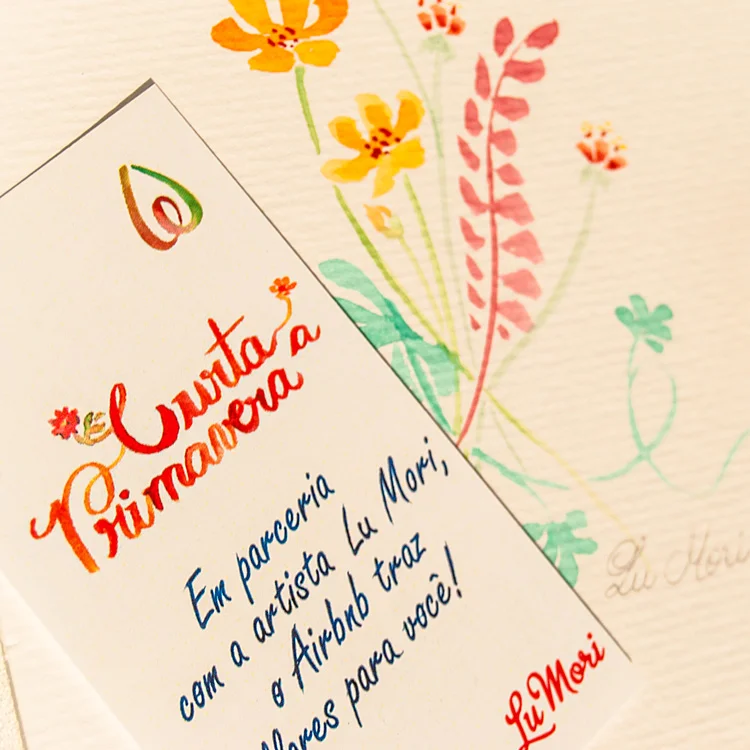 Curta a
Primavera
Em parceria
com a artista Lu Mori,
o Airbnb traz
flores para você!
Lu Mori
Lu Mori